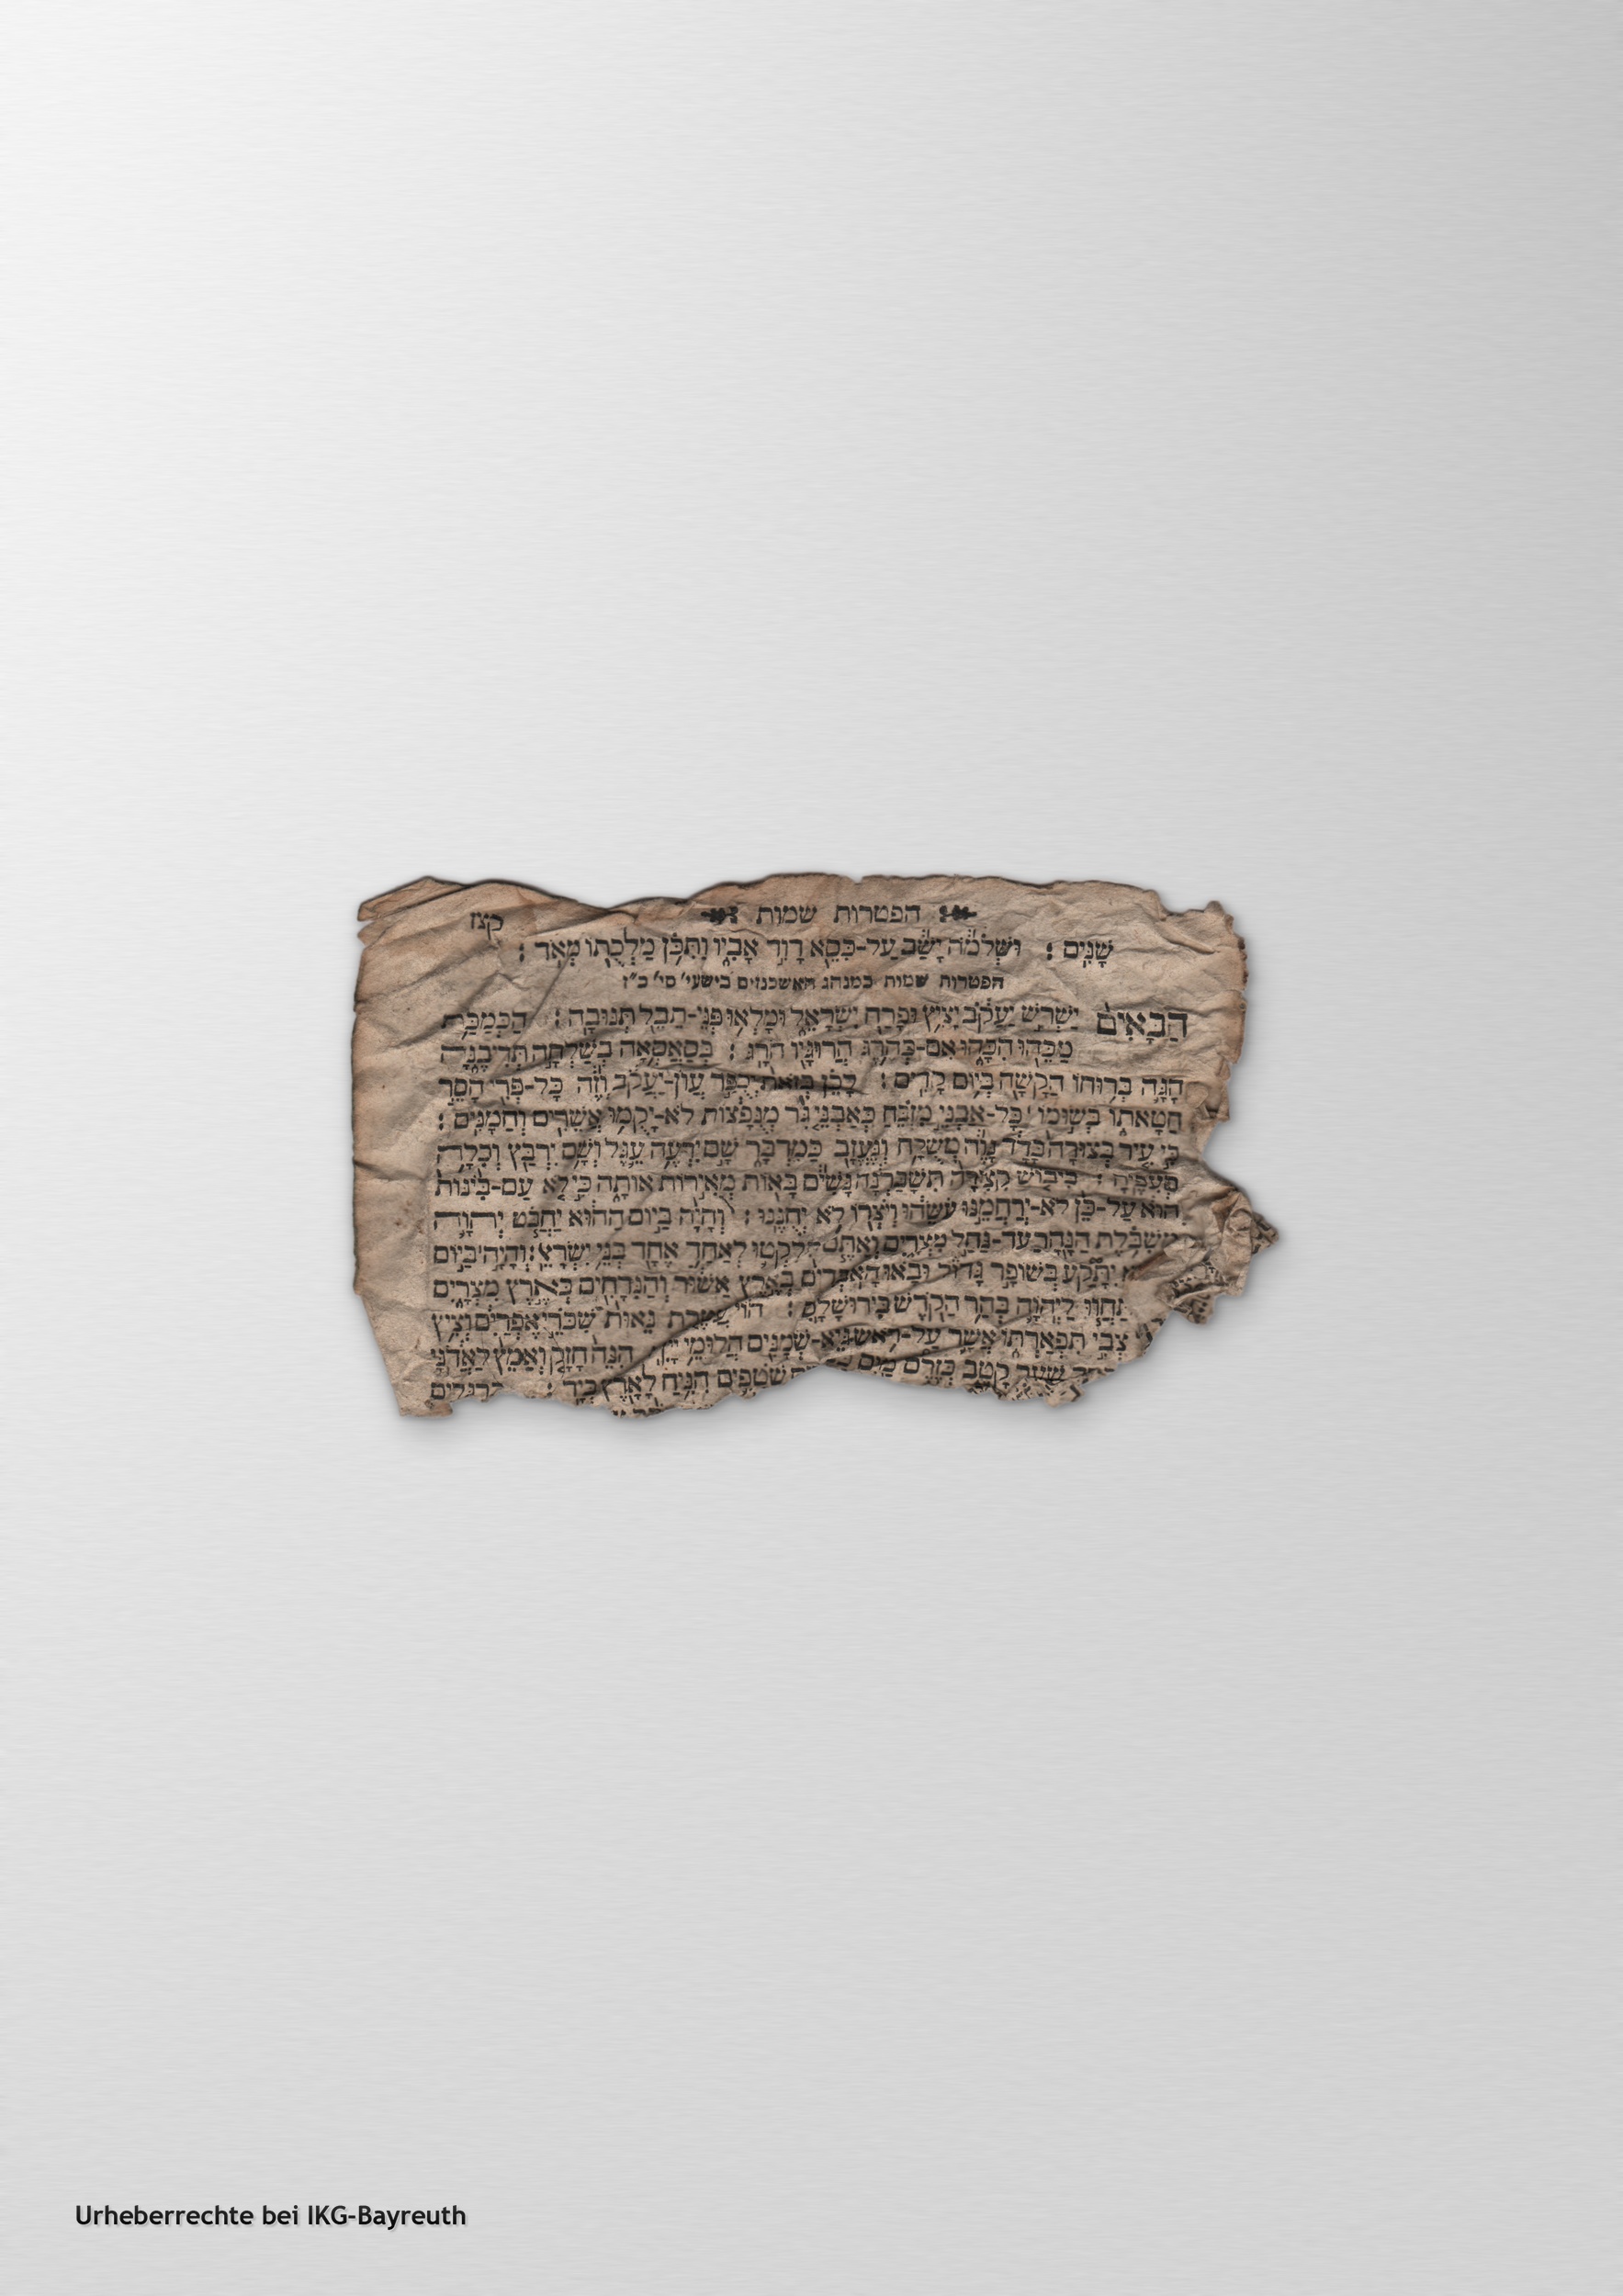 הפטרות שמות קצז
שָׁנִים : וּשְׁלֹמֹה יָשַׁב עַל-כִּסֵּא דָּוִד אָבִיו וַתִּכֹּן מַלְכֻתוֹ מְאֹד :
הפטרות שמות כמנהג האשכנזים בישעי' סי' כ"ז
הַבָּאִים יַשְׁרֵשׁ יַעֲקֹב יָצִיץ וּפָרַח יִשְׂרָאֵל וּמָלְאוּ פְּנֵי-תֵבֵל תְּנוּבָה : הַכְּמַכַּת
מַכֵּהוּ הִכָּהוּ אִם-כְּהֶרֶג הֲרוּגָיו הֹרָג : בְּסַאסְּאָה בְּשַׁלְחָהּ תְּרִיבֶנָּה
הָגָה בְּרוּחוֹ הַקָּשָׁה בְּיוֹם קָדִים : לָכֵן בְּזֹאת יְכֻפַּר עֲוֹן-יַעֲקֹב וְזֶה כָּל-פְּרִי הָסֵר
חַטָּאתוֹ בְּשׂוּמוֹ כָּל-אַבְנֵי מִזְבֵּחַ כְּאַבְנֵי גִר מְנֻפָּצוֹת לֹא-יָקֻמוּ אֲשֵׁרִים וְחַמָּנִים :
כִּי עִיר בְּצוּרָה בָּדָד נָוֶה מְשֻׁלָּח וְנֶעֱזָב כַּמִּדְבָּר שָׁם יִרְעֶה עֵגֶל וְשָׁם יִרְבָּץ וְכִלָּה
סְעִפֶיהָ : בִּיבֹשׁ קְצִירָהּ תִּשָּׁבַרְנָה נָשִׁים בָּאוֹת מְאִירוֹת אוֹתָהּ כִּי לֹא עַם-בִּינוֹת
הוּא עַל-כֵּן לֹא-יְרַחֲמֶנּוּ עֹשֵׂהוּ וְיֹצְרוֹ לֹא יְחֻנֶּנּוּ : וְהָיָה בַּיּוֹם הַהוּא יַחְבֹּט יְהוָה
מִשִּׁבֹּלֶת הַנָּהָר עַד-נַחַל מִצְרָיִם וְאַתֶּם תְּלֻקְּטוּ לְאַחַד אֶחָד בְּנֵי יִשְׂרָאֵל : וְהָיָה בַּיּוֹם
יִתָּקַע בְּשׁוֹפָר גָּדוֹל וּבָאוּ הָאֹבְדִים בְּאֶרֶץ אַשּׁוּר וְהַנִּדָּחִים בְּאֶרֶץ מִצְרָיִם
לַיהוָה בְּהַר הַקֹּדֶשׁ בִּירוּשָׁלָ͏ִם : הוֹי עֲטֶרֶת גֵּאוּת שִׁכֹּרֵי אֶפְרַיִם וְצִיץ
צְבִי תִפְאַרְתּוֹ אֲשֶׁר עַל-רֹאשׁ גֵּיא-שְׁמָנִים הֲלוּמֵי יָיִן הִנֵּה חָזָק וְאַמִּץ לַאדֹנָי
שַׂעַר קָטֶב כְּזֶרֶם מַיִם שֹׁטְפִים הִנִּיחַ לָאָרֶץ בְּיָד : בְּרַגְלַיִם
Urheberrechte bei IKG-Bayreuth